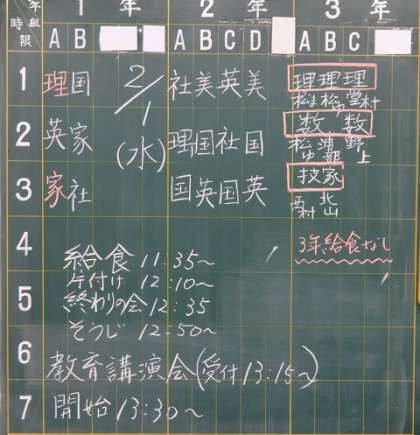 1年 2年 3年
時限 組
A B A B C D A B C
1 理国 2/1 社美英美 理理理
2 英家 (水) 理国社国 数 数
松浦野
中部上
3 家社 国英国英 技家
西北
村山
4 3年給食なし
給食 11:35~
片付け 12:10~
5 終わりの会 12:35
そうじ 12:50~
6 教育講演会(受付13:15~)
7 開始 13:30~